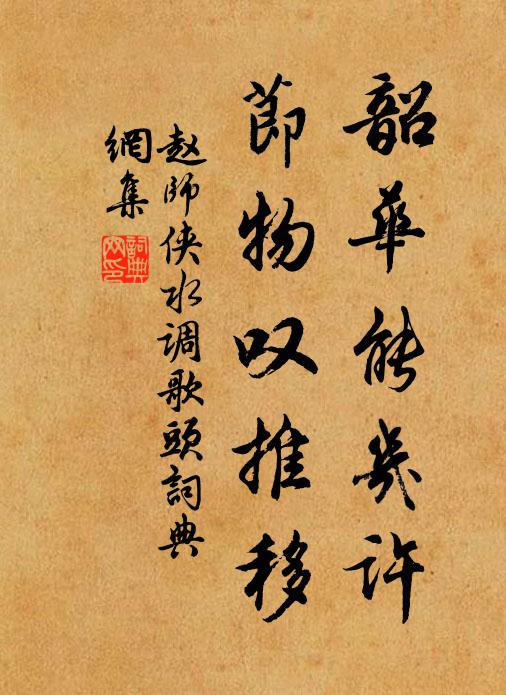 韶華能幾许
節物叹推移
赵師侠水调歌頭詞典
網集
詞典
网印